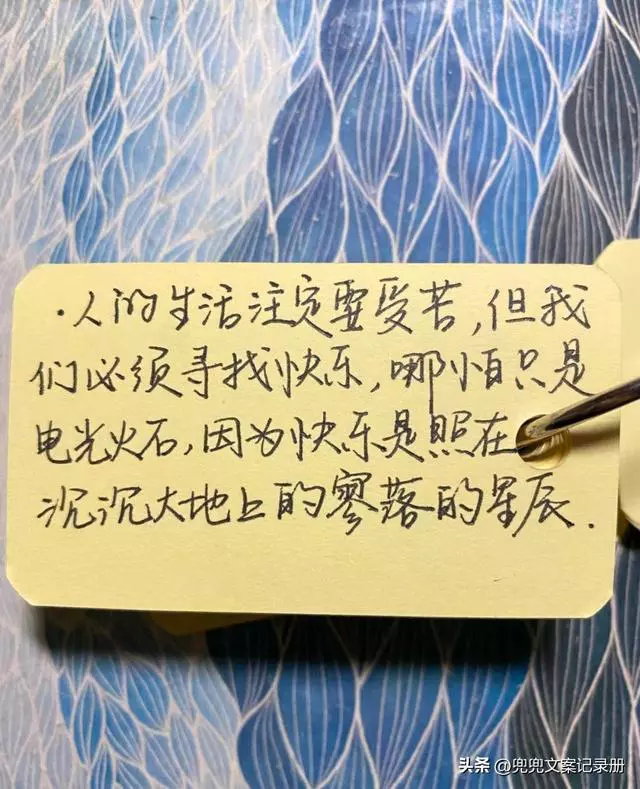 ·人的生活注定要受苦,但我
们必须寻找快乐,哪怕只是
电光火石,因为快乐是照在
沉沉大地上的寥落的星辰.
头条@兜兜文案记录册